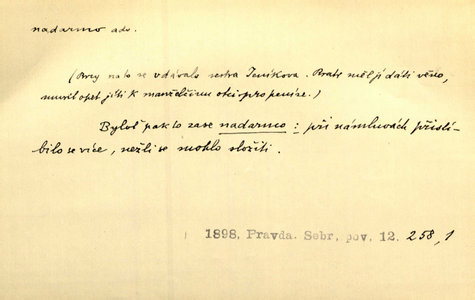 nadarmo adv.
(Brzy na to se vdávala sestra Jeníkova. Bratr měl jí dáti věno,
musil opět jíti k manželčinu otci pro peníze.)
Byloť pak to zase nadarmo: při námluvách přislí-
bilo se více, nežli se mohlo složiti.
1898, Pravda. Sebr. pov. 12. 258, 1